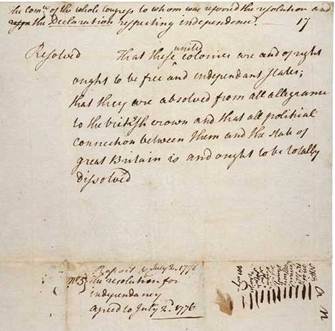 The Com.ee of the whole Congress to whom was referred the resolution and
the Declaration respecting independence. — 17
Resolved That these united colonies are and of right
ought to be free and independant states;
that they are absolved from all allegiance
to the british crown and that all political
connection between them and the state of
great Britain is and ought to be totally
dissolved
Report July 2. 1776
No 3
resolution for
independancy
agreed to July 2d. 1776